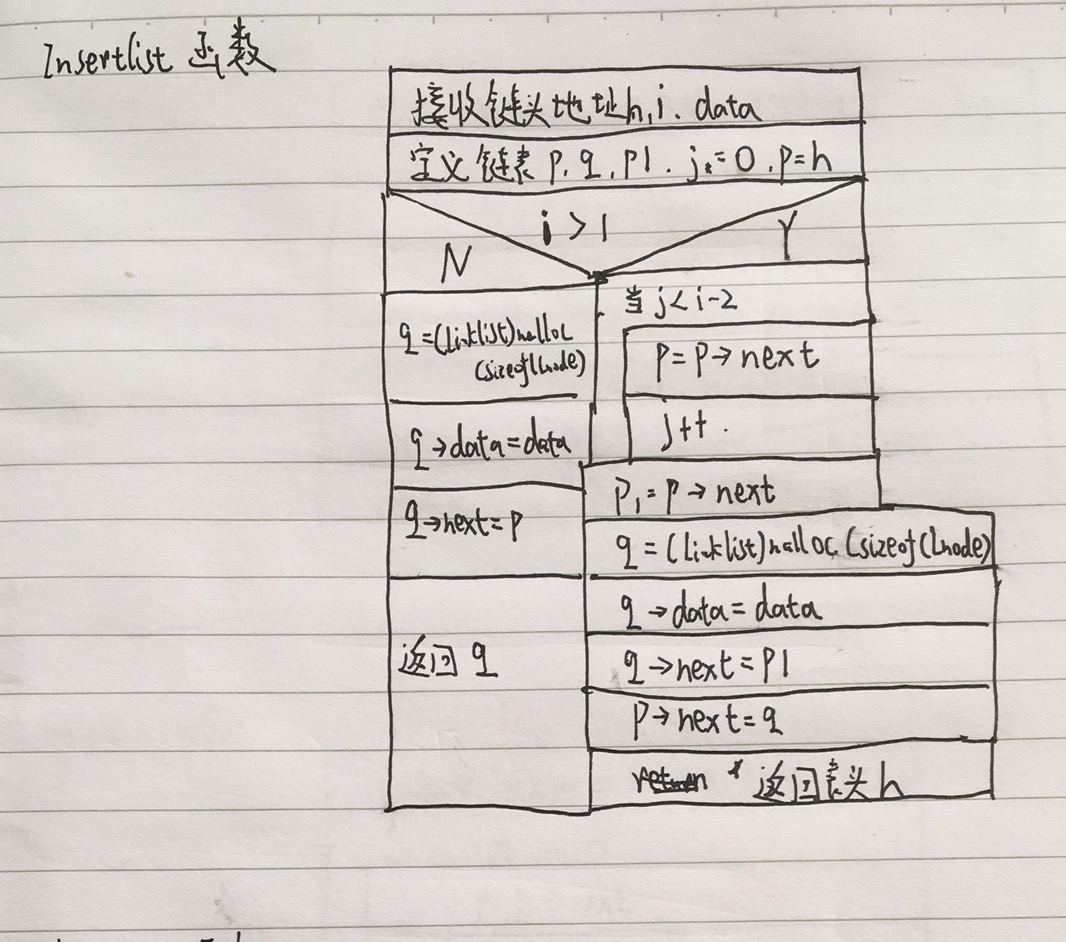 Insertlist 函数
接收链头地址h,i. data
定义链表 p, q, p1. j=0, p=h
i>1
N
Y
q=(Linklist)malloc
(sizeof(Lnode)
q→data=data
q→next=p
返回 q
当 j<i-2
p=p→next
j++.
p1=p→next
q=(Linklist)malloc(sizeof(Lnode)
q→data=data
q→next=p1
p→next=q
返回表头h